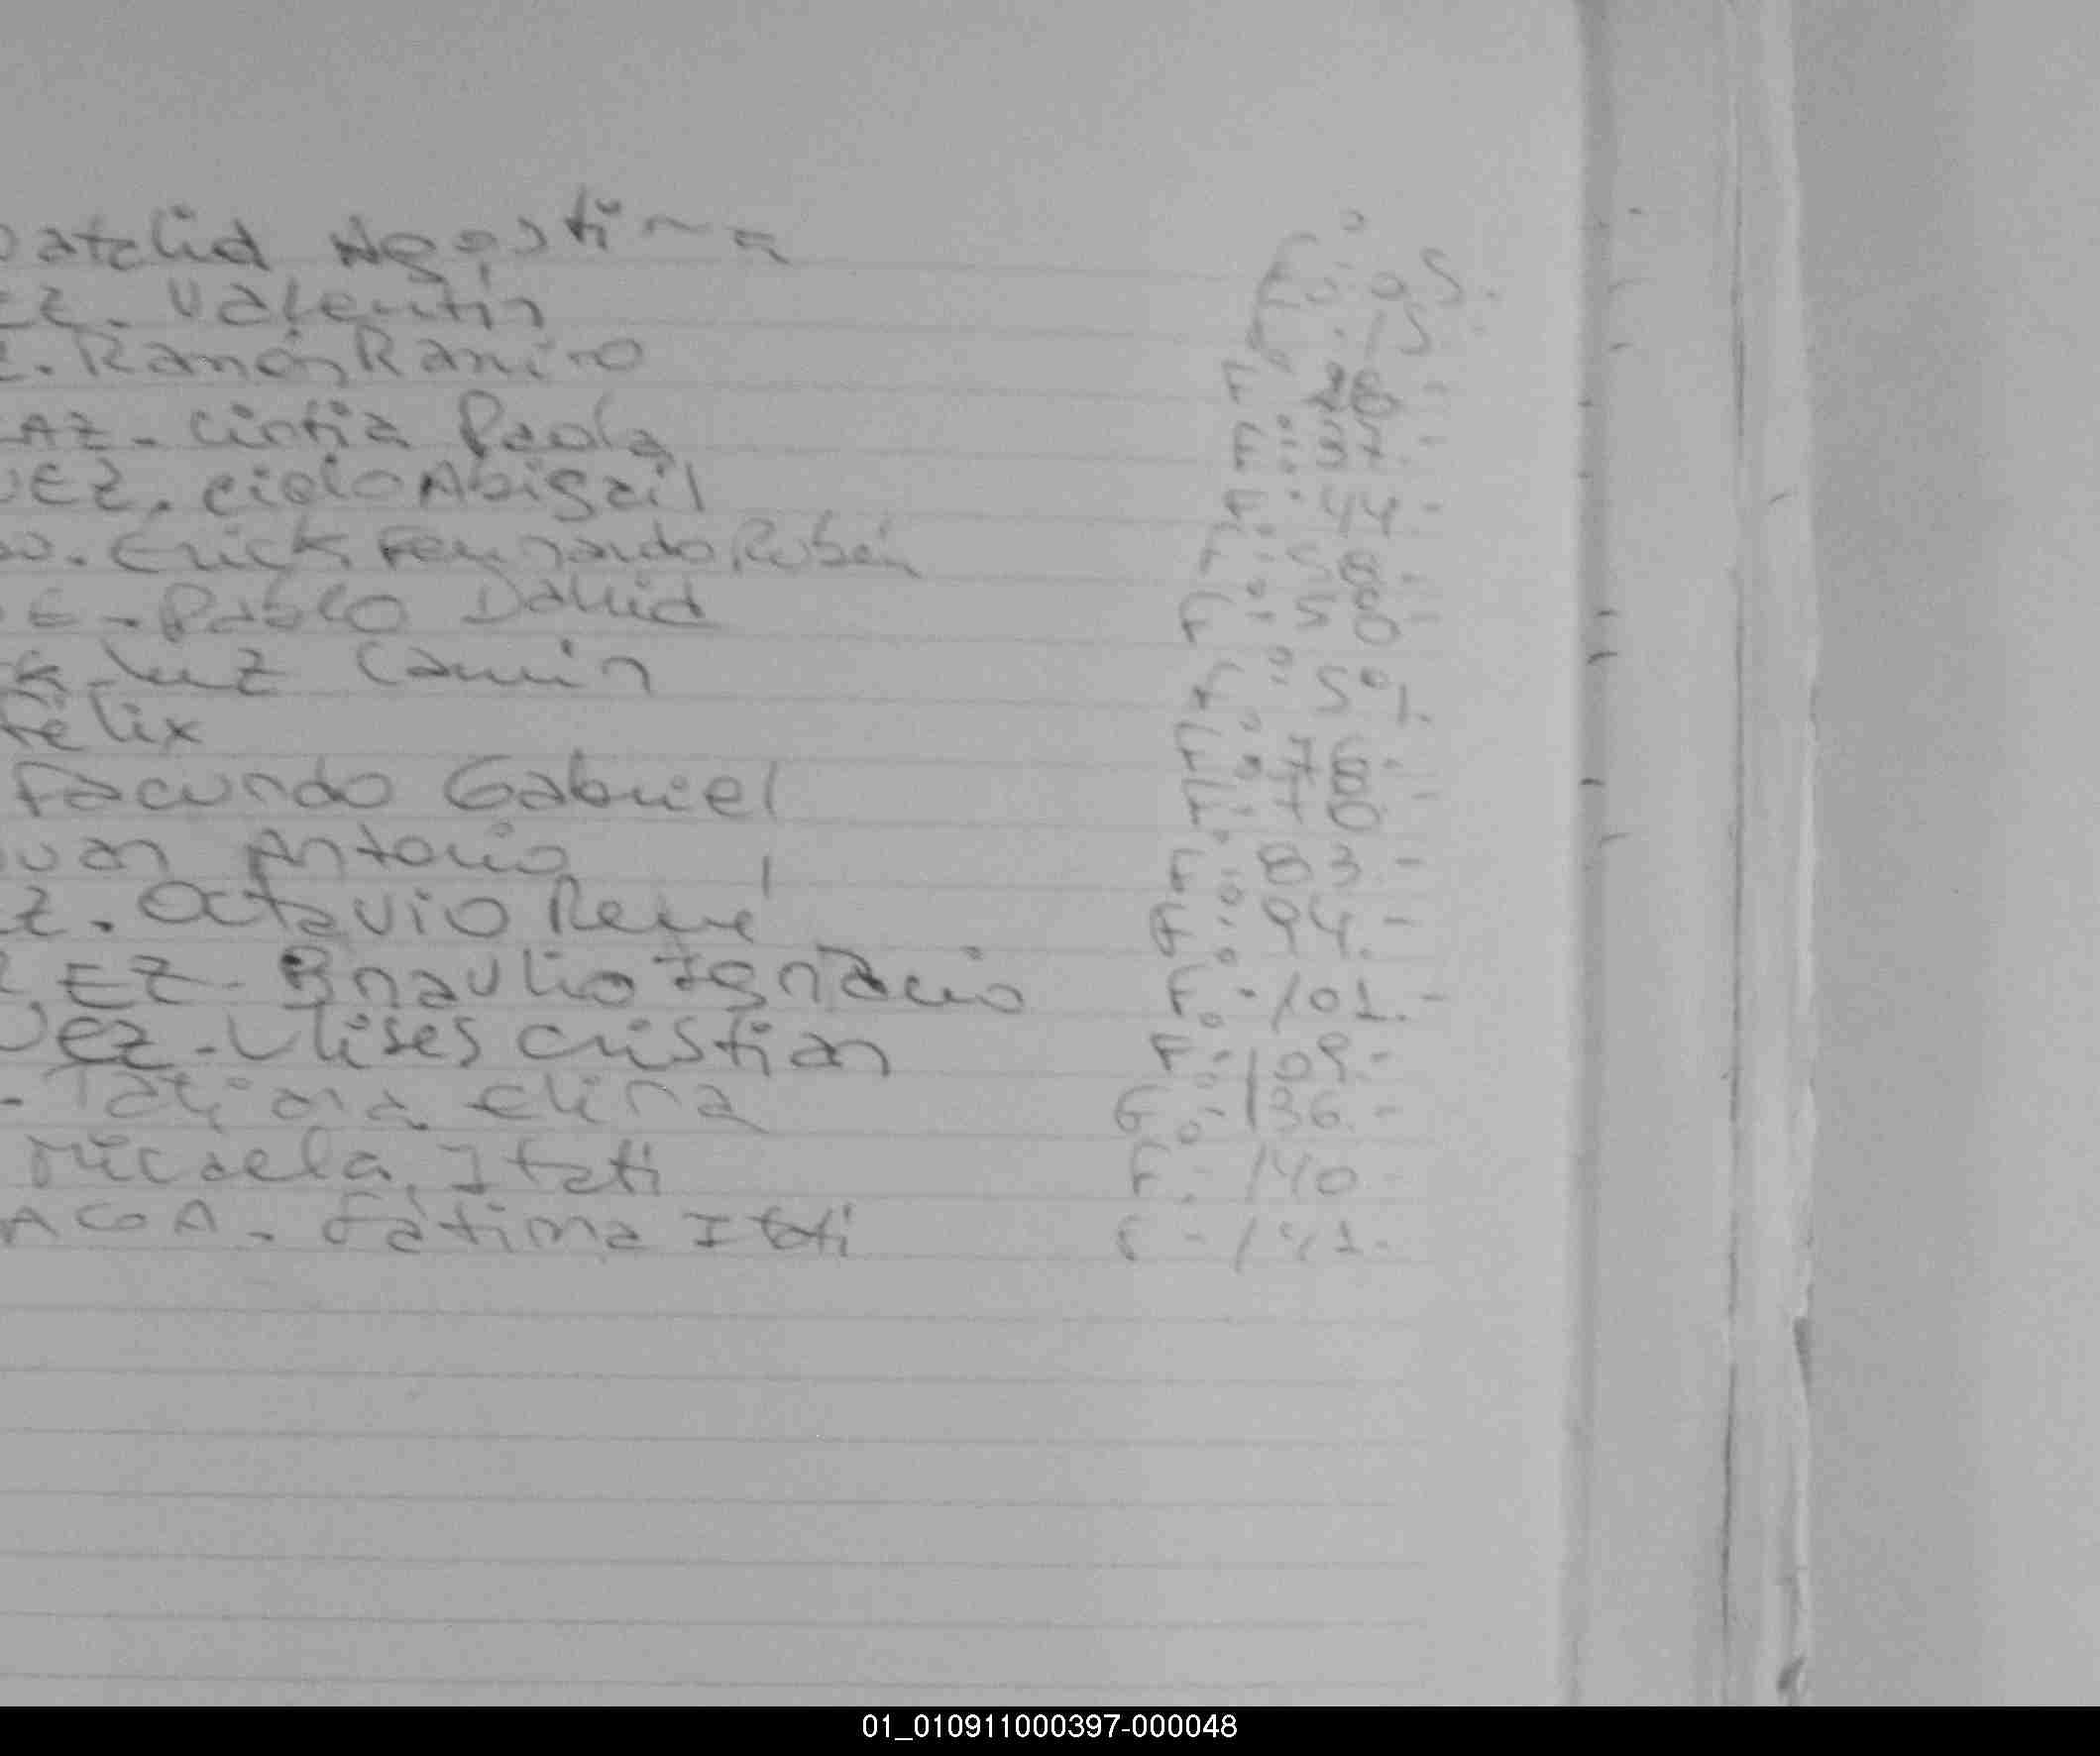 Natalia Agostina F°: 05.
EZ. Valentín F°: 15.
Z. Ramón Ramiro F° 28-
AZ- Cintia Paola F°: 37.-
UEZ. Cielo Abigail F°: 44.-
Erick Fernando Rubén F°:
E- Pablo David F°: 50-
Luz Camin F°: 59.
Félix F°: 76-
Facundo Gabriel F°: 78.-
uan Antonio F°: 83.-
Z. Octavio René F°: 94.-
EZ- Braulio Ignacio F°- 101.-
UEZ- Ulises Cristian F°: 109.-
- Tatiana Elina F°- 136.-
Micaela Itatí F°- 140-
ACOA- Fátima Itatí F- 141.-
01_010911000397-000048